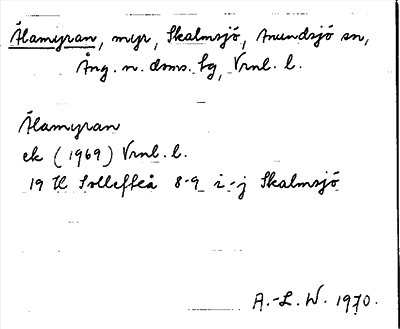 Älamyran, myr, Skalmsjö, Anundsjö sn,
Ång. n. doms. bg, Vrnl. l.
Älamyran
ek (1969) Vrnl. l.
19 H Sollefteå 8-9 i-j Skalmsjö
A.-L. W. 1970.